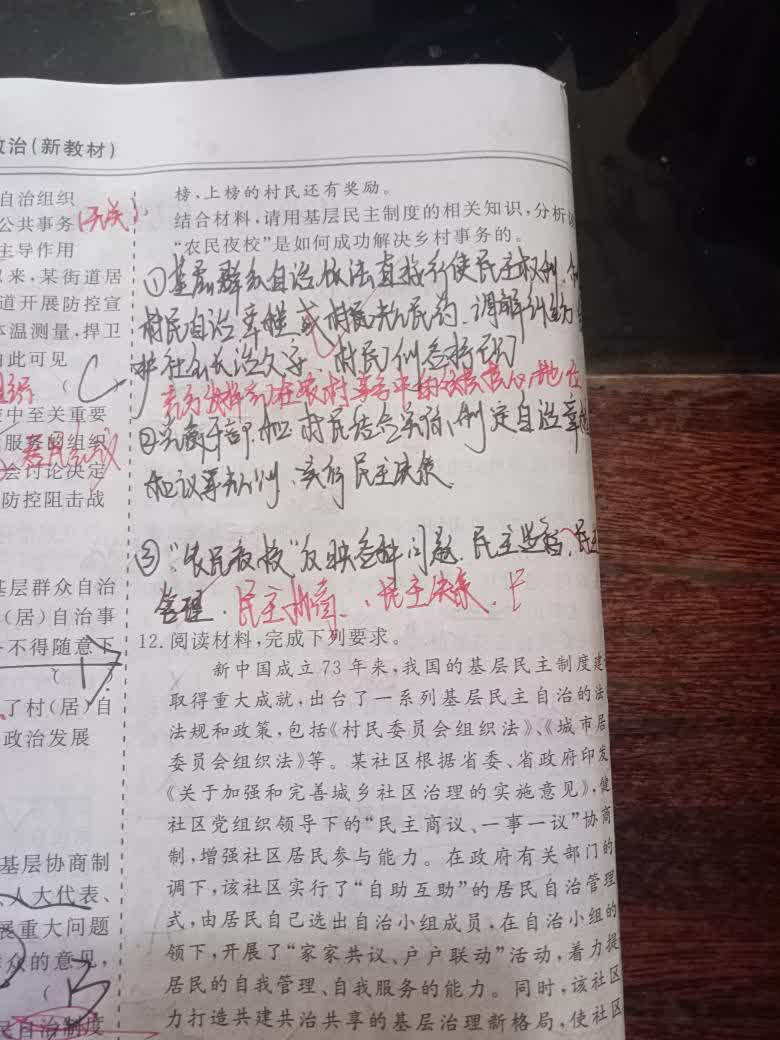 政治(新教材)
自治组织
公共事务(无关)
主导作用
以来,某街道居
道开展防控宣
体温测量,捍卫
由此可见
( C
中至关重要
服务的组织
会讨论决定
防控阻击战
基层群众自治
(居)自治事
不得随意下
( D
了村(居)自
政治发展
基层协商制
人大代表、
展重大问题
众的意见,
( B
自治制度
榜,上榜的村民还有奖励。
结合材料,请用基层民主制度的相关知识,分析
“农民夜校”是如何成功解决乡村事务的。
①基层群众自治依法直接行使民主权利、
村民自治章程或村规民约、调解纠纷
护社会长治久
充分发挥 在农村 中的 核心地位
②党员干部和村民结合实际,制定自治章
和议事规则、实行民主决策
③“农民夜校”反映各种问题、民主选举、民主
管理、民主协商、民主决策、
12. 阅读材料,完成下列要求。
新中国成立 73 年来,我国的基层民主制度建
取得重大成就,出台了一系列基层民主自治的法
法规和政策,包括《村民委员会组织法》、《城市居
委员会组织法》等。某社区根据省委、省政府印发
《关于加强和完善城乡社区治理的实施意见》,健
社区党组织领导下的“民主商议、一事一议”协商
制,增强社区居民参与能力。在政府有关部门的
调下,该社区实行了“自助互助”的居民自治管理
式,由居民自己选出自治小组成员,在自治小组的
领下,开展了“家家共议、户户联动”活动,着力提
居民的自我管理、自我服务的能力。同时,该社区
力打造共建共治共享的基层治理新格局,使社区